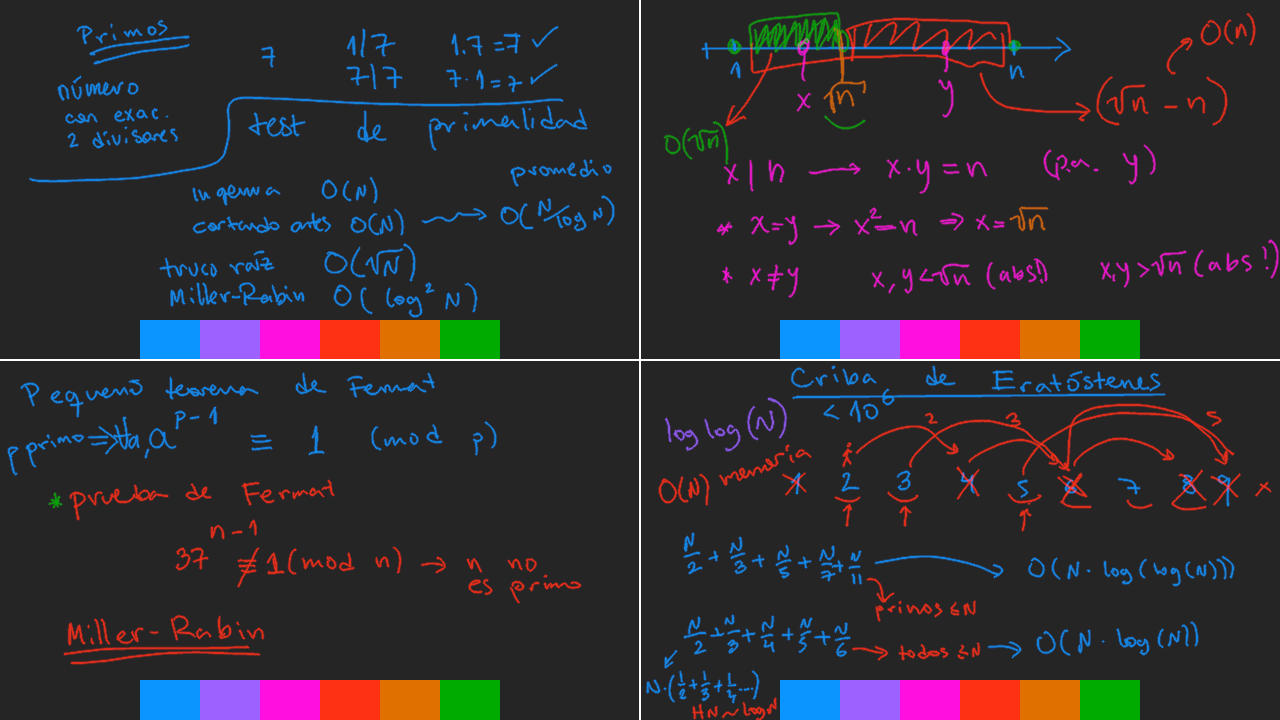 Primos
número
con exac.
2 divisores
7
1|7 1.7=7 ✓
7|7 7.1=7 ✓
test de primalidad
promedio
ingenua O(N)
cortando antes O(N) → O(N/log N)
truco raíz O(√N)
Miller-Rabin O(log² N)
1 x √n y n
O(n)
(√n - n)
O(√n)
x | n → x.y = n (p.a. y)
* x=y → x²=n ⇒ x=√n
* x≠y x,y<√n (abs!) x,y>√n (abs!)
Pequeño teorema de Fermat
p primo ⇒ ∀a, a^(p-1) ≡ 1 (mod p)
* prueba de Fermat
37^(n-1) ≢ 1 (mod n) → n no
es primo
Miller-Rabin
Criba de Eratóstenes
< 10⁶
log log(N)
2 3 5
O(N) memoria
1 2 3 4 5 6 7 8 9 x
N/2 + N/3 + N/5 + N/7 + N/11 → O(N · log(log(N)))
primos ≤ N
N/2 + N/3 + N/4 + N/5 + N/6 → todos ≤ N → O(N · log(N))
N·(1/2 + 1/3 + 1/4 ...)
HN ~ log N